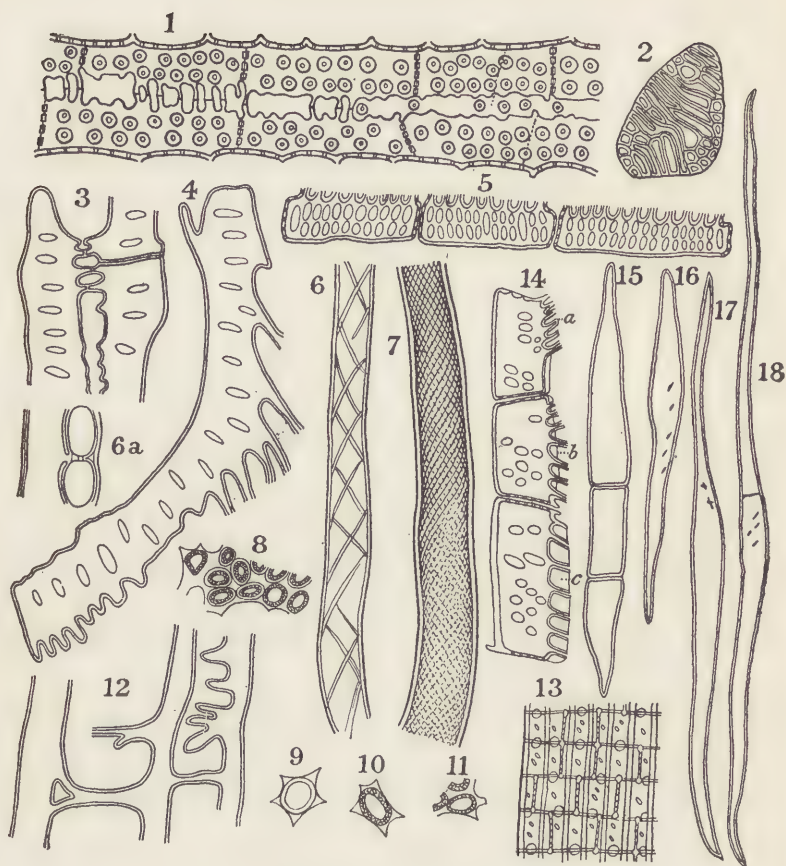 1
2
3
4
5
6
7
14
a
b
c
15
16
17
18
6a
8
12
9
10
11
13